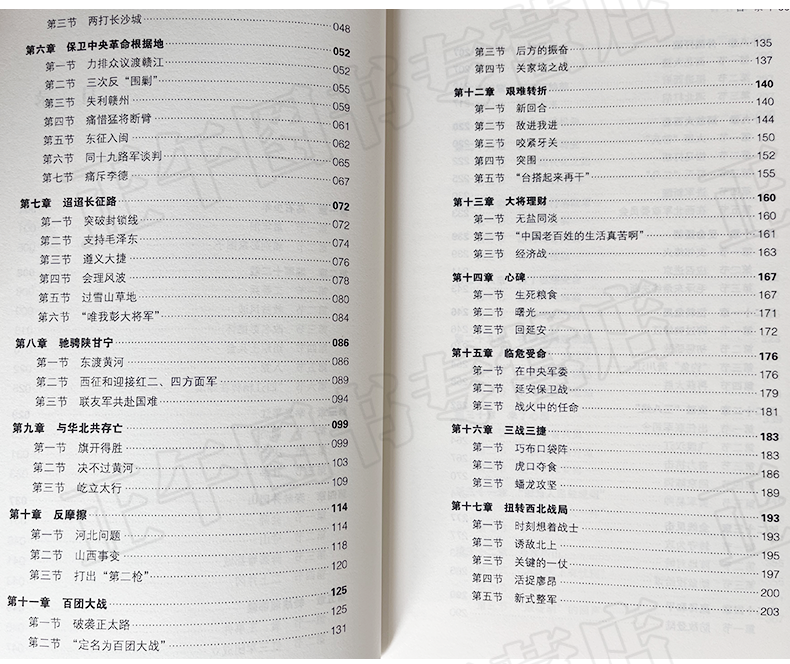 第三节 两打长沙城 048
第六章 保卫中央革命根据地 052
第一节 力排众议渡赣江 052
第二节 三次反“围剿” 055
第三节 失利赣州 059
第四节 痛惜猛将断臂 061
第五节 东征入闽 062
第六节 同十九路军谈判 065
第七节 痛斥李德 067
第七章 迢迢长征路 072
第一节 突破封锁线 072
第二节 支持毛泽东 074
第三节 遵义大捷 076
第四节 会理风波 078
第五节 过雪山草地 080
第六节 “唯我彭大将军” 084
第八章 驰骋陕甘宁 086
第一节 东渡黄河 086
第二节 西征和迎接红二、四方面军 089
第三节 联友军共赴国难 094
第九章 与华北共存亡 099
第一节 旗开得胜 099
第二节 决不过黄河 103
第三节 屹立太行 109
第十章 反摩擦 114
第一节 河北问题 114
第二节 山西事变 118
第三节 打出“第二枪” 120
第十一章 百团大战 125
第一节 破袭正太路 125
第二节 “定名为百团大战” 131
第三节 后方的振奋 135
第四节 关家垴之战 137
第十二章 艰难转折 140
第一节 新回合 140
第二节 敌进我进 144
第三节 咬紧牙关 150
第四节 突围 152
第五节 “台搭起来再干” 155
第十三章 大将理财 160
第一节 无盐同淡 160
第二节 “中国老百姓的生活真苦啊” 161
第三节 经济战 163
第十四章 心碑 167
第一节 生死粮食 167
第二节 曙光 171
第三节 回延安 172
第十五章 临危受命 176
第一节 在中央军委 176
第二节 延安保卫战 179
第三节 战火中的任命 181
第十六章 三战三捷 183
第一节 巧布口袋阵 183
第二节 虎口夺食 186
第三节 蟠龙攻坚 189
第十七章 扭转西北战局 193
第一节 时刻想着战士 193
第二节 诱敌北上 195
第三节 关键的一仗 197
第四节 活捉廖昂 200
第五节 新式整军 203